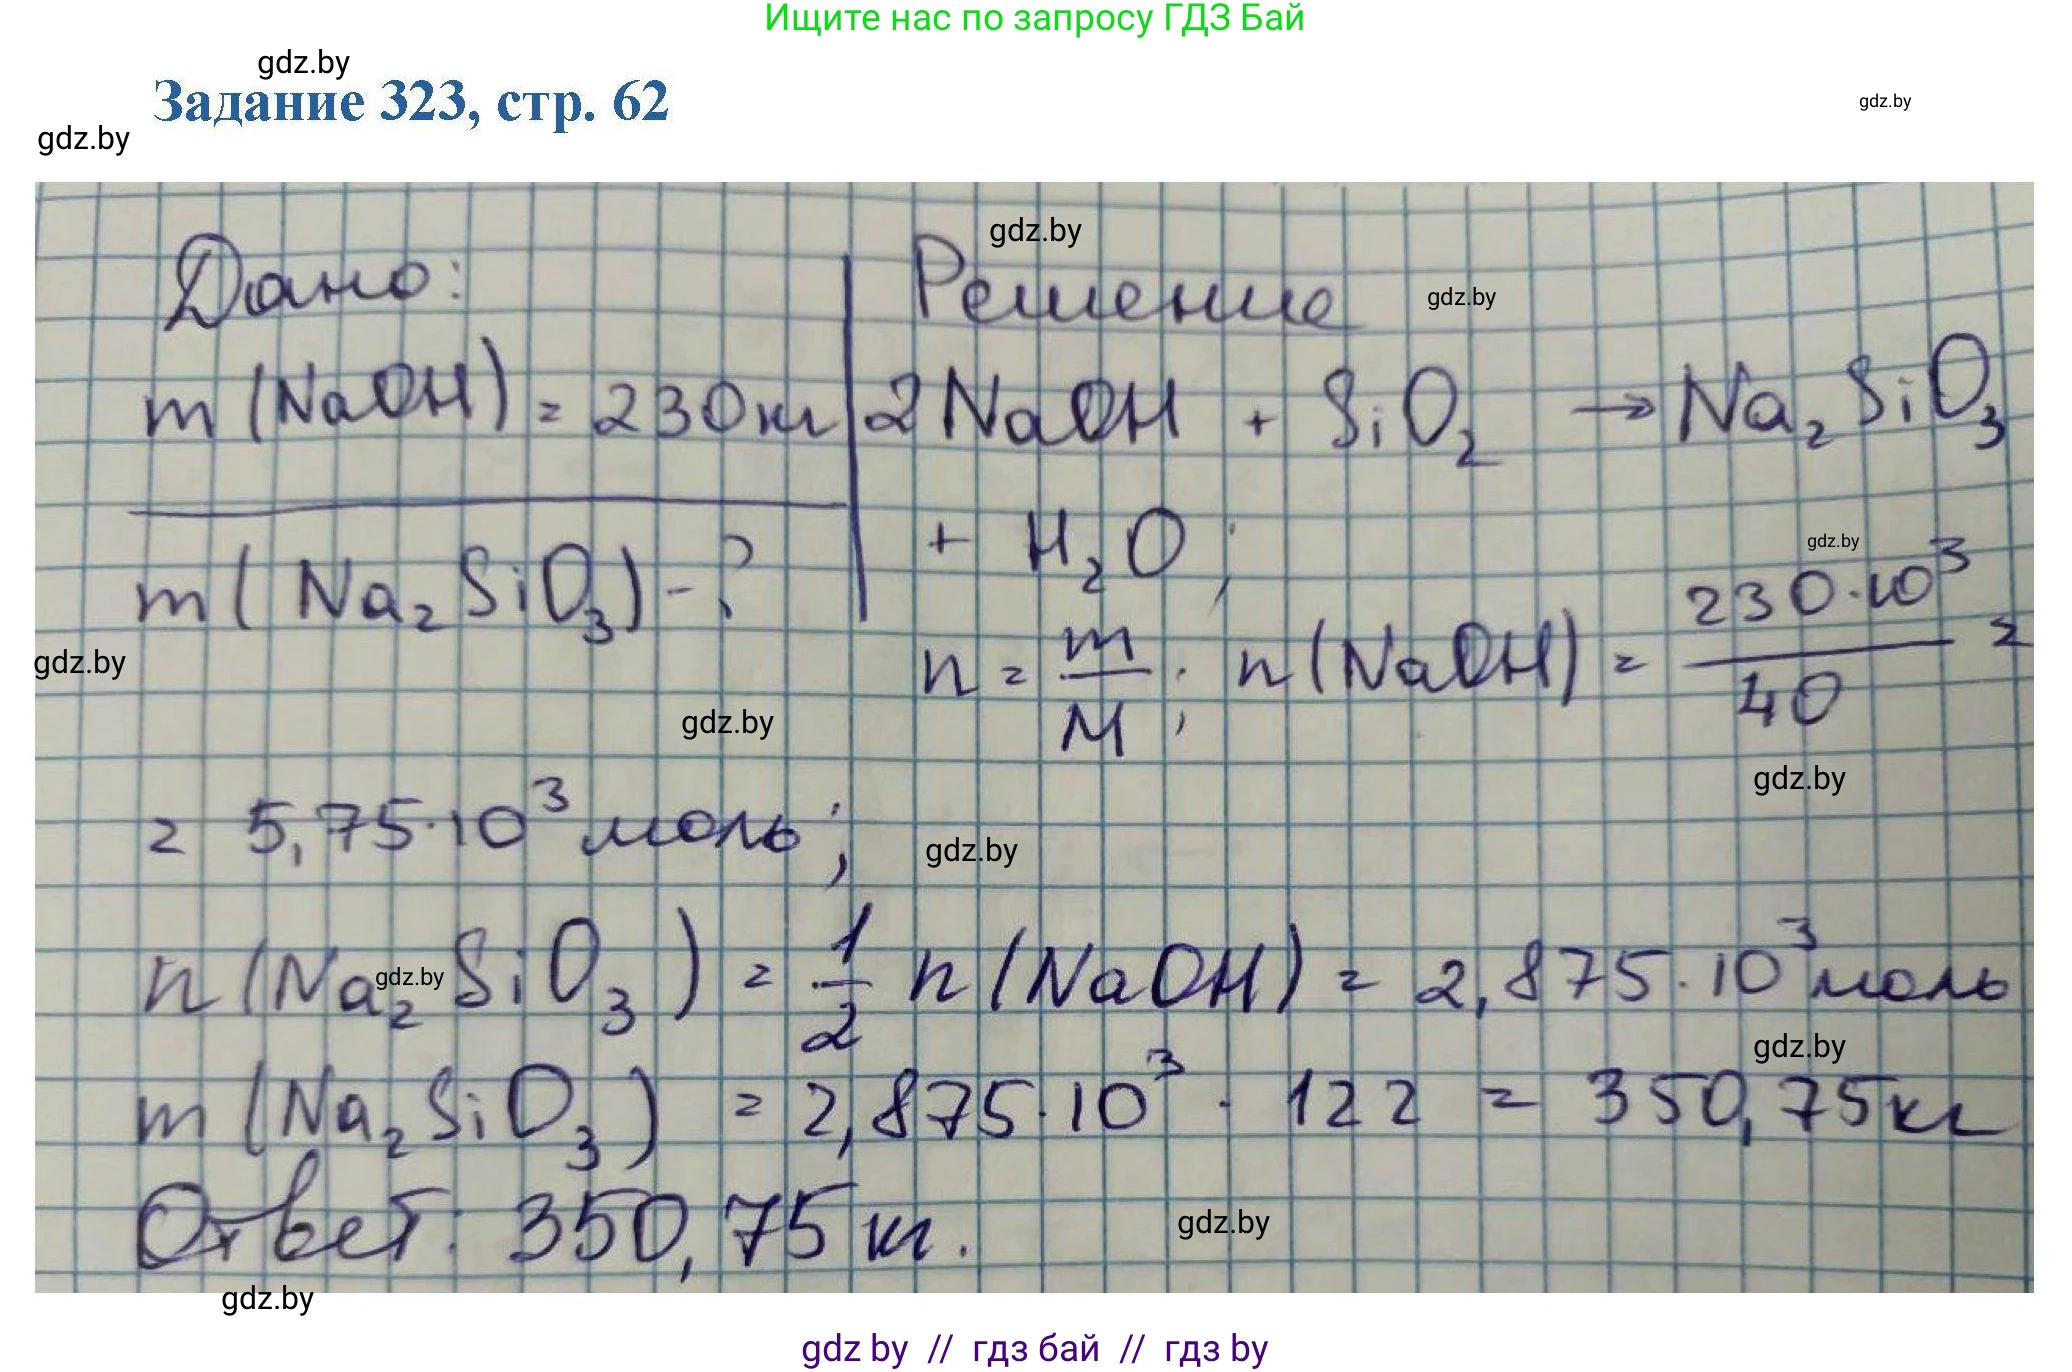 Ищите нас по запросу ГДЗ Бай
gdz.by
Задание 323, стр. 62
gdz.by
gdz.by
gdz.by
Дано:
Решение
gdz.by
m (NaOH) = 230 кг
2NaOH + SiO₂ → Na₂SiO₃
+ H₂O ;
gdz.by
m( Na₂SiO₃) - ?
n = m/M ; n(NaOH) = 230·10³/40 =
gdz.by
gdz.by
gdz.by
= 5,75·10³ моль;
gdz.by
n(Na₂SiO₃) = 1/2 n(NaOH) = 2,875·10³ моль
gdz.by
gdz.by
m(Na₂SiO₃) = 2,875·10³ · 122 = 350,75 кг
Ответ: 350,75 кг.
gdz.by
gdz.by
gdz by // гдз бай // гдз by